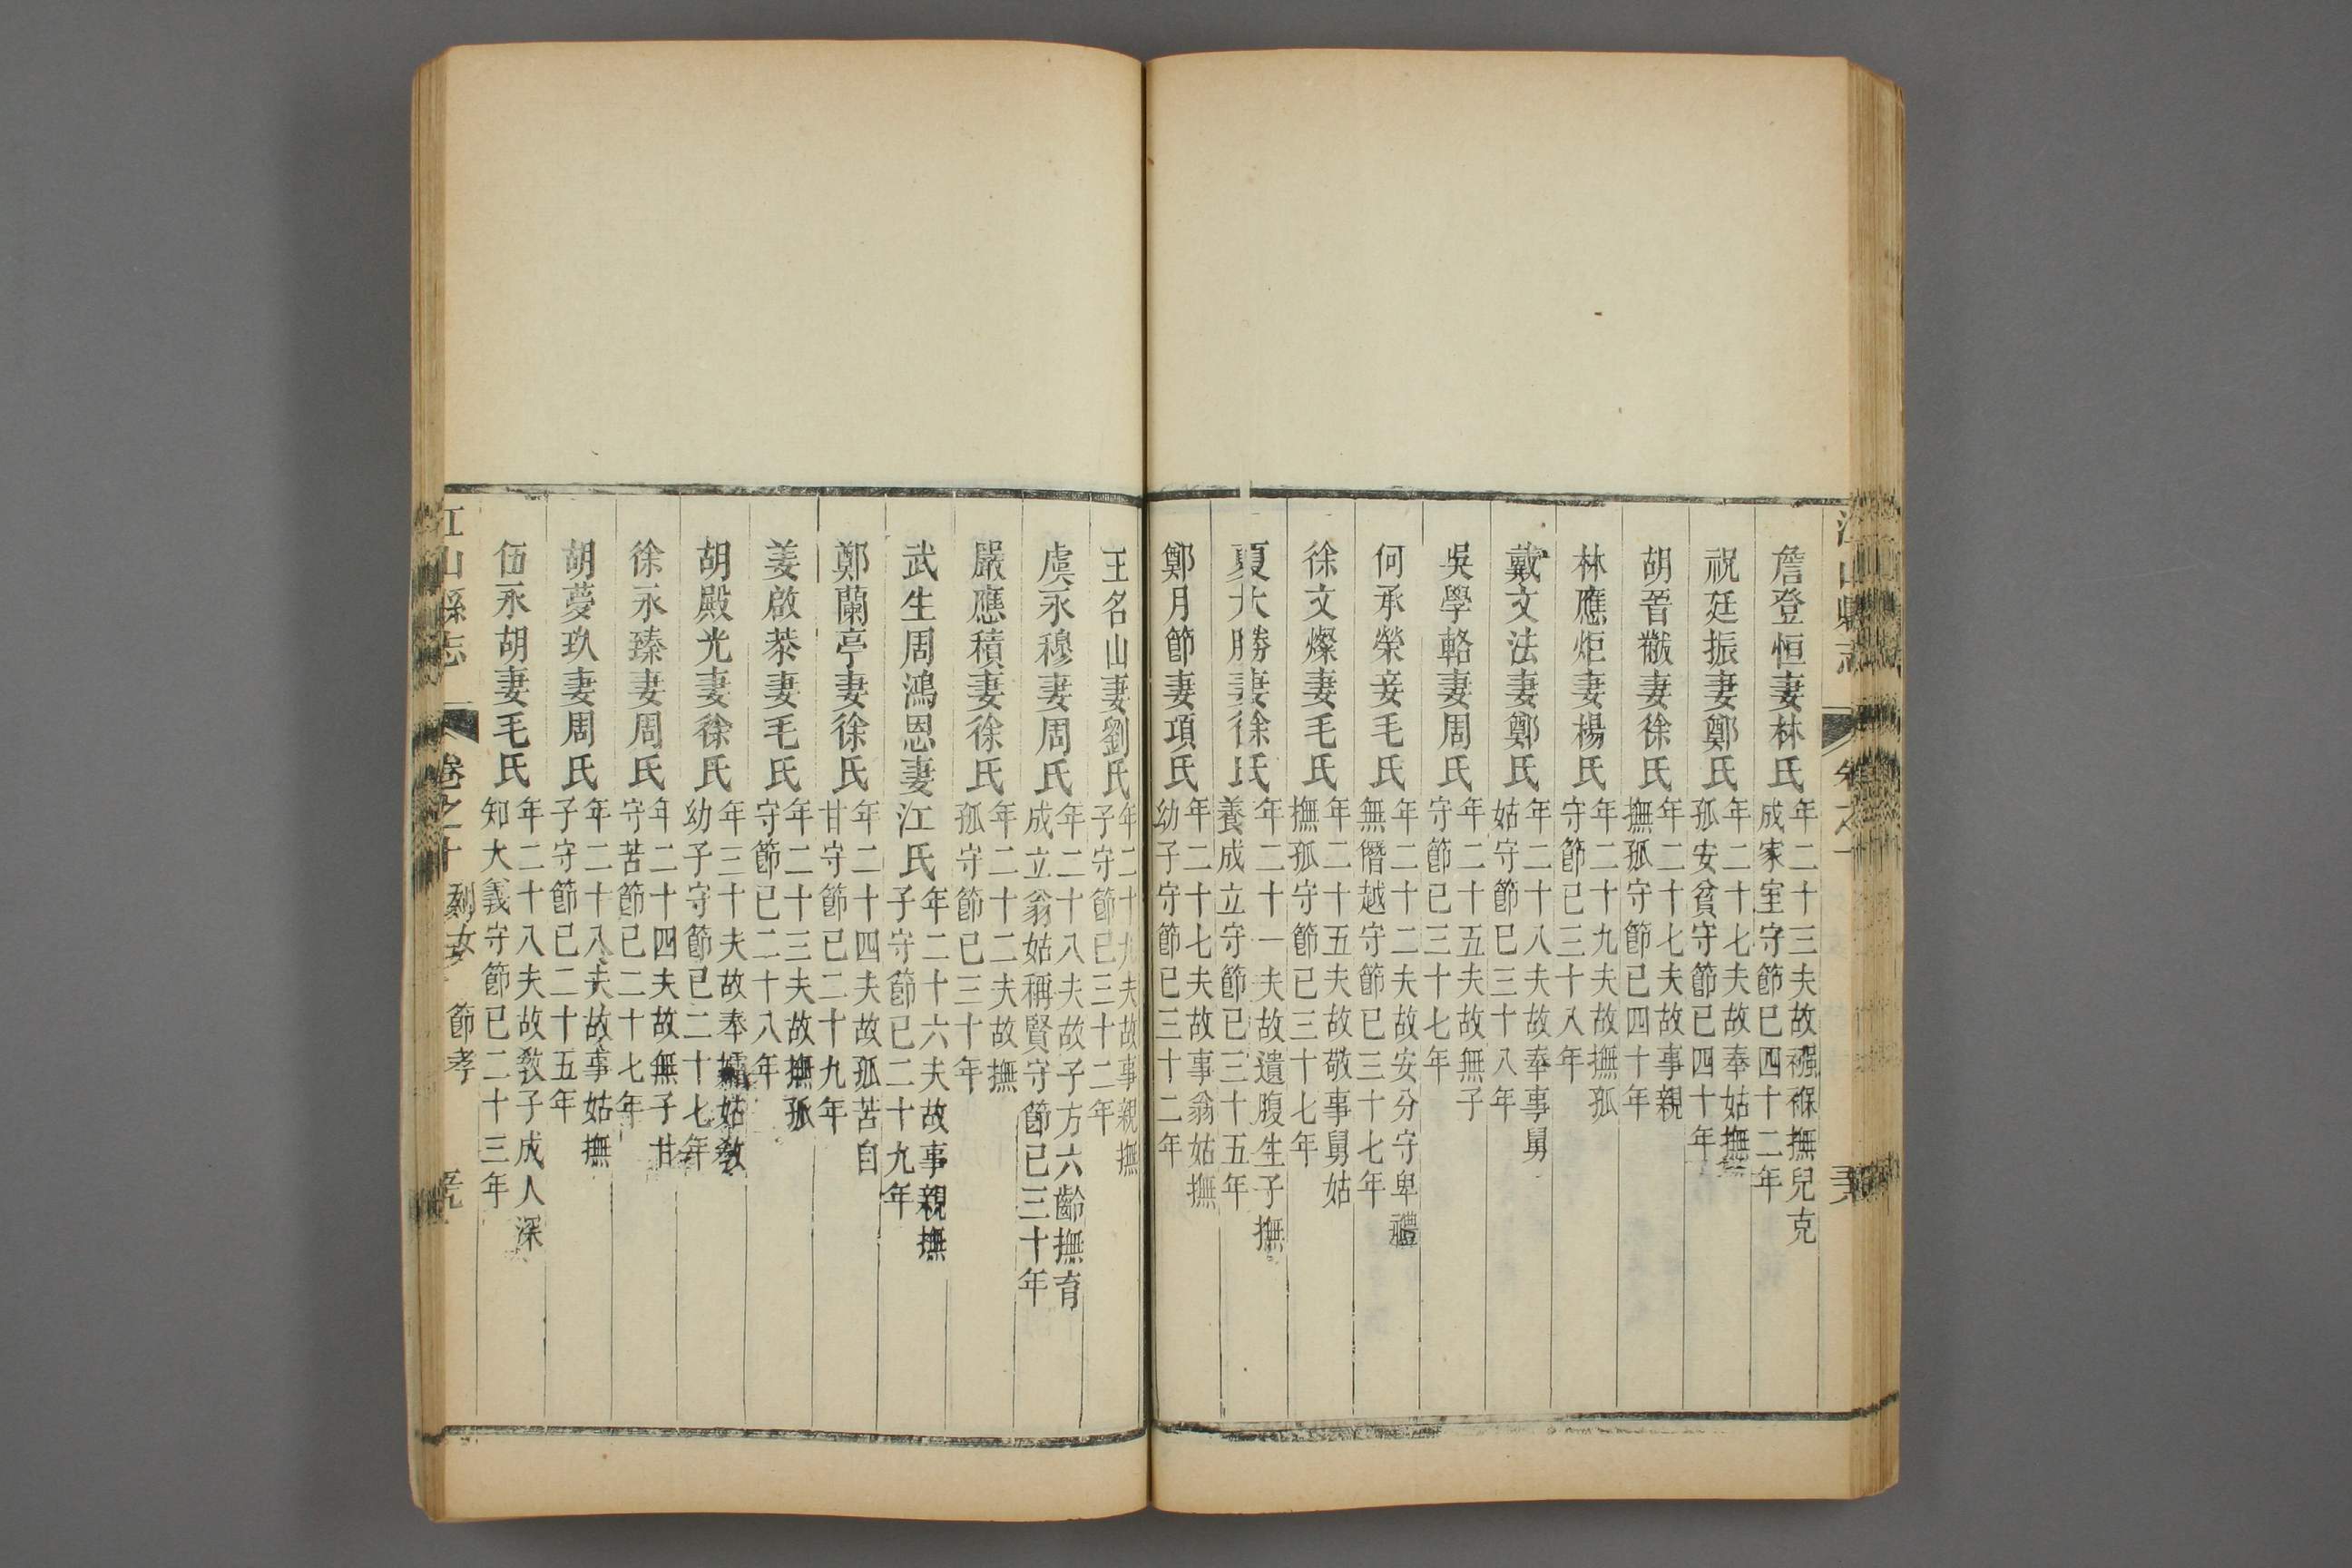 詹登恒妻林氏年二十三夫故襁褓撫兒克成家室守節已四十二年
祝廷振妻鄭氏年二十七夫故奉姑撫孤安貧守節已四十年
胡晉黻妻徐氏年二十七夫故事親撫孤守節已四十年
林應炬妻楊氏年二十九夫故撫孤守節已三十八年
戴文法妻鄭氏年二十八夫故奉事舅姑守節已三十八年
吳學輅妻周氏年二十五夫故無子守節已三十七年
何承榮妾毛氏年二十二夫故安分守卑禮無僭越守節已三十七年
徐文燦妻毛氏年二十五夫故敬事舅姑撫孤守節已三十七年
夏大勝妻徐氏年二十一夫故遺腹生子撫養成立守節已三十五年
鄭月節妻項氏年二十七夫故事翁姑撫幼子守節已三十二年
王名山妻劉氏年二十九夫故事親撫子守節已三十二年
虞永穆妻周氏年二十八夫故子方六齡撫育成立翁姑稱賢守節已三十年
嚴應積妻徐氏年二十二夫故撫孤守節已三十年
武生周鴻恩妻江氏年二十六夫故事親撫子守節已二十九年
鄭蘭亭妻徐氏年二十四夫故孤苦自甘守節已二十九年
姜啟棻妻毛氏年二十三夫故撫孤守節已二十八年
胡殿光妻徐氏年三十夫故奉孀姑教幼子守節已二十七年
徐永臻妻周氏年二十四夫故無子甘守苦節已二十七年
胡夢玖妻周氏年二十八夫故事姑撫子守節已二十五年
伍永胡妻毛氏年二十八夫故教子成人深知大義守節已二十三年
江山縣志 卷之十 列女 節孝